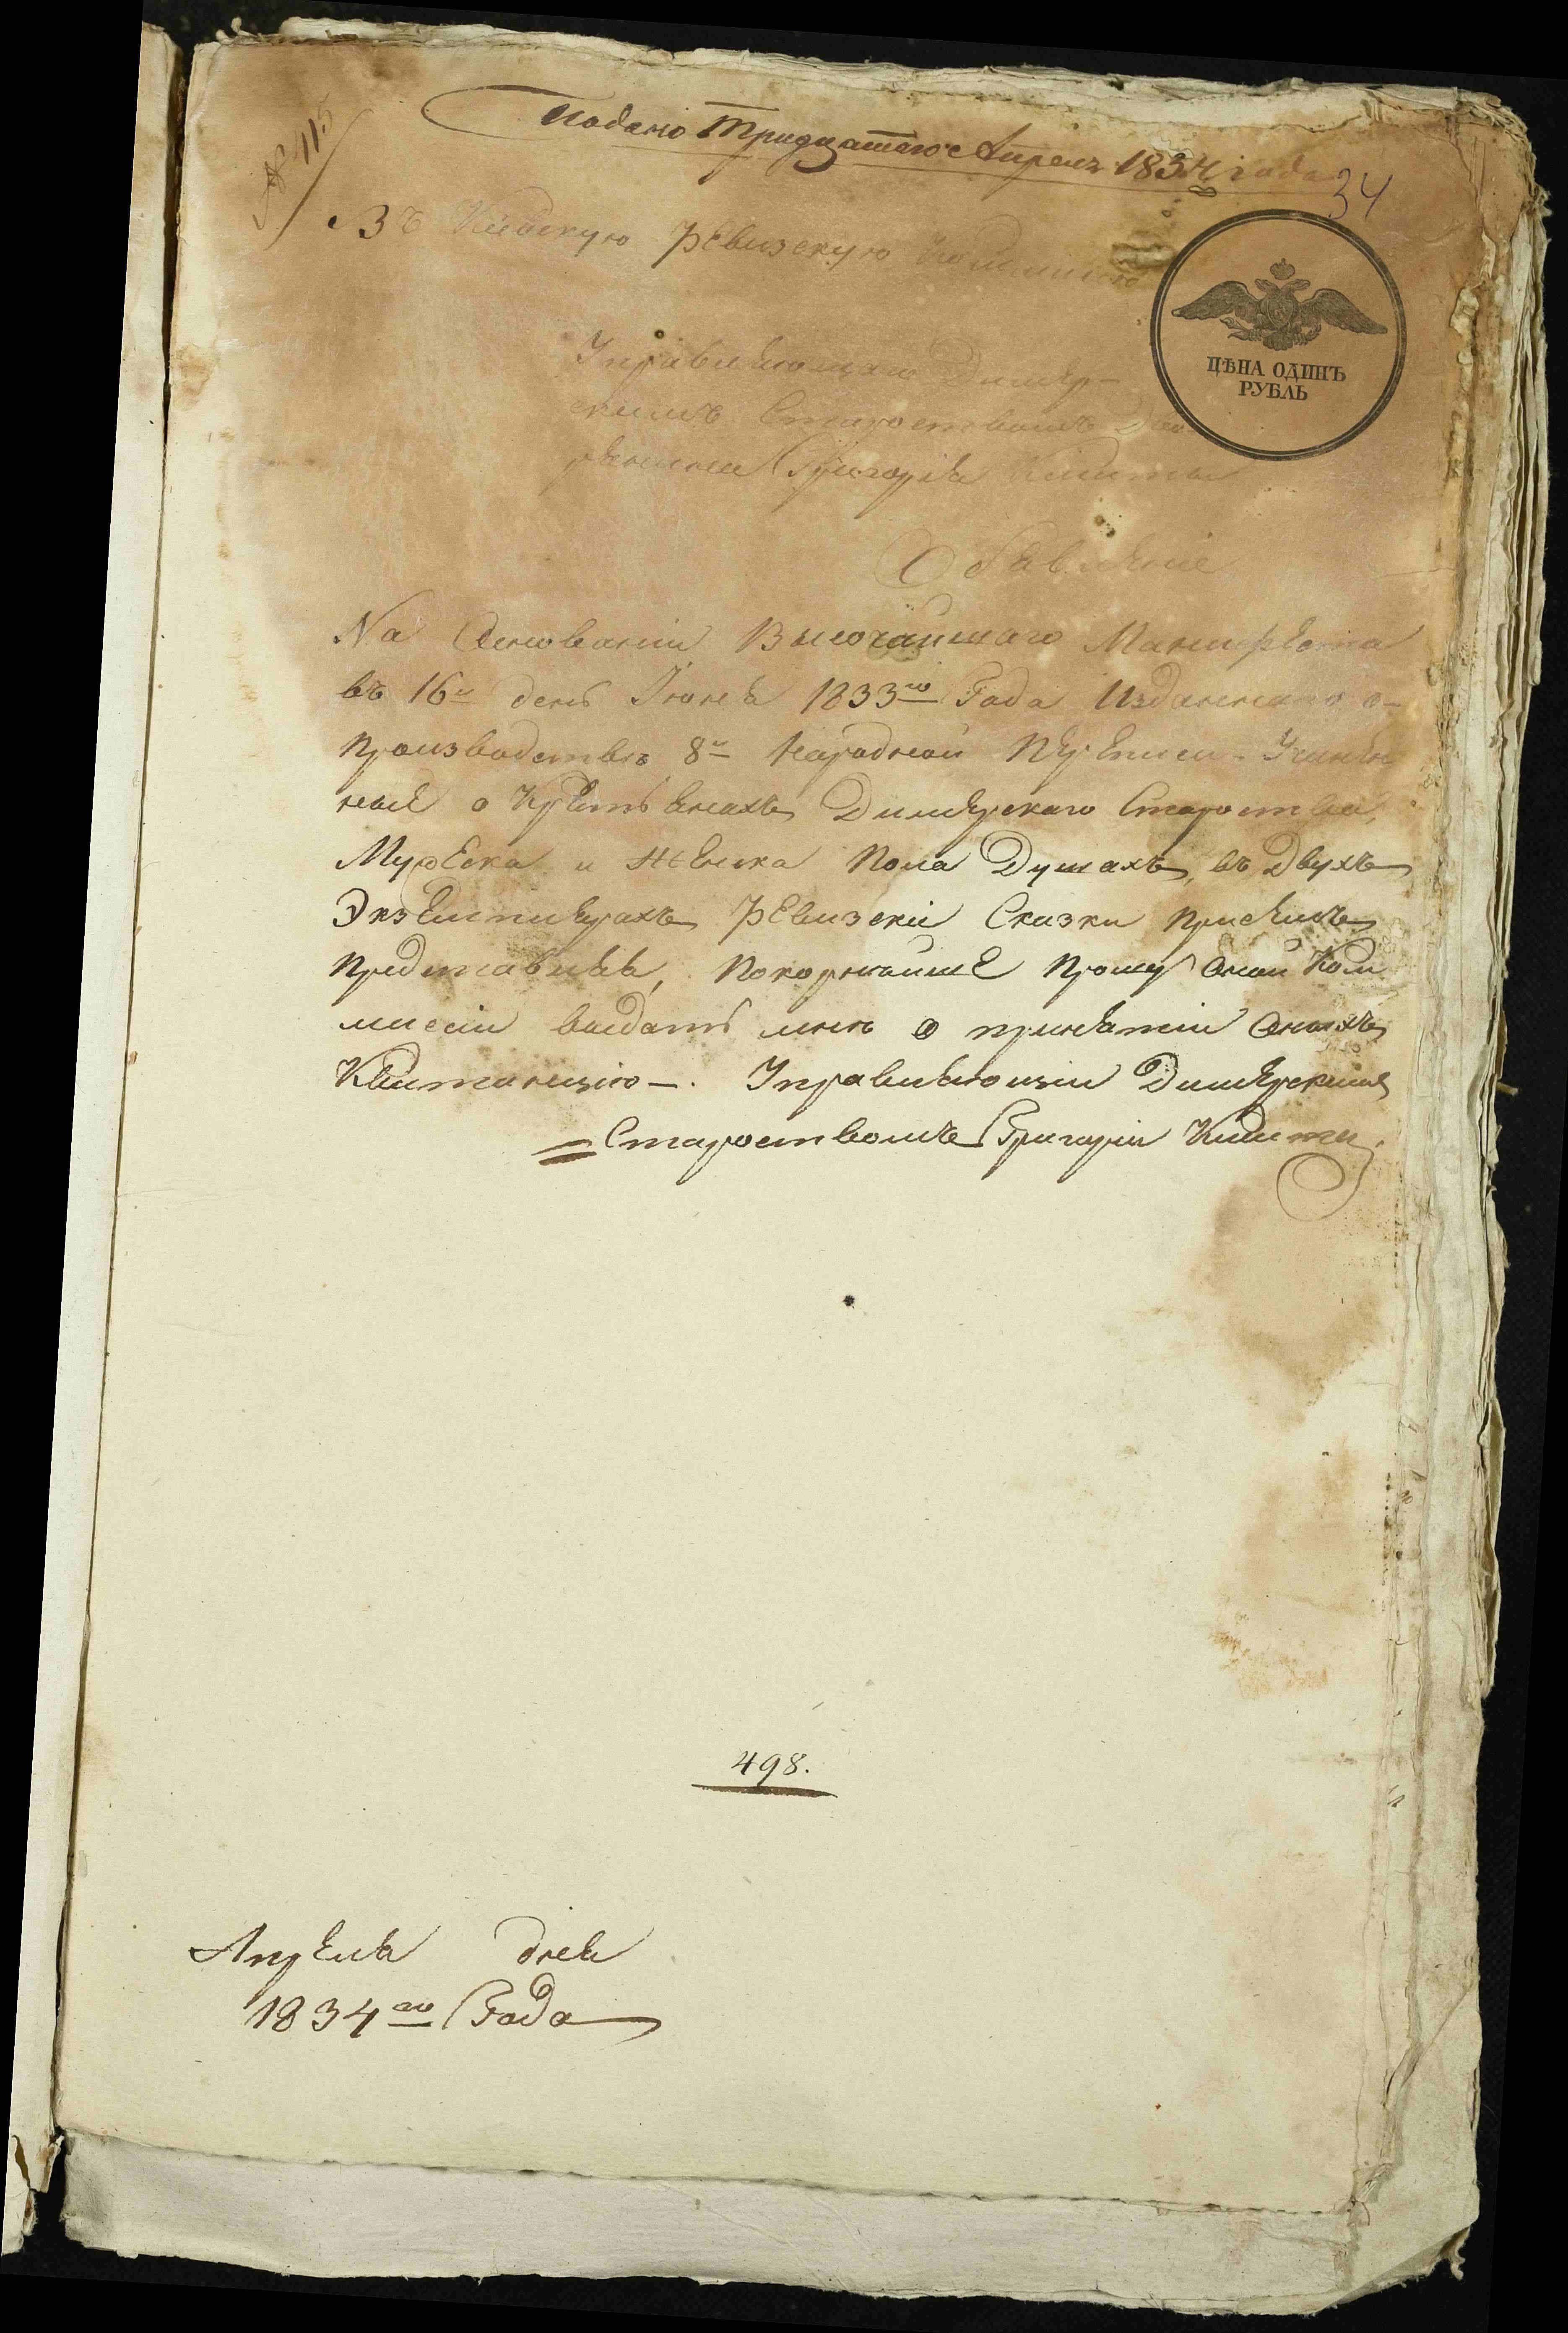 № 115
Подано Тридцатаго Апреля 1834 года
34
Въ Киевскую Ревизскую Коммисію
ЦѢНА ОДИНЪ
РУБЛЬ
Управляющаго Димер-
скимъ Староствомъ Дво
ренина Григорія
Обявленіе
На Основаніи Высочайшаго Манифеста
въ 16й день Іюня 1833го Года Изданнаго о
производствѣ 8й Народной Переписи Учинен
ные о Крестьянахъ Димерскаго Староства,
Мужеска и Женска Пола Душахъ, въ Двухъ
Экземпляряхъ Ревизскіи Сказки присемъ
представляя, Покорнейше Прошу Оной Ком
мисіи выдать мне о принятіи Оныхъ
Квитанцію. Управляющій Димерскимъ
Староствомъ Григорій
498.
Апреля дня
1834го Года